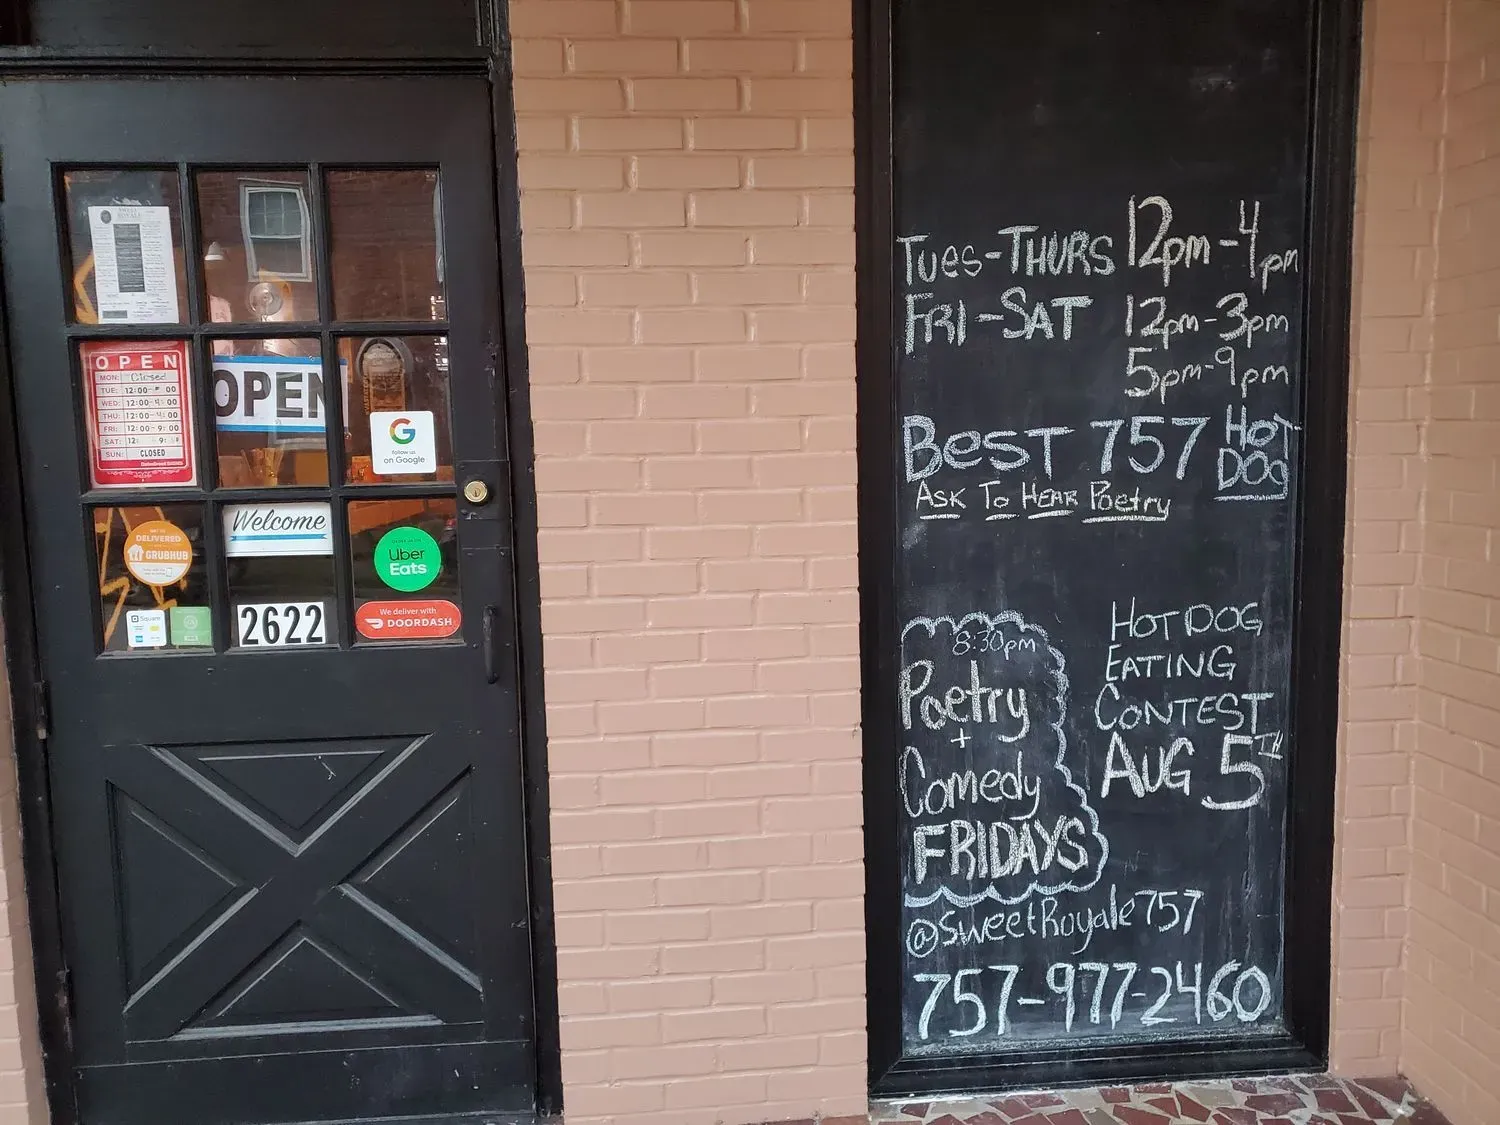 SWEET
ROYALE
OPEN
MON: Closed
TUE: 12:00- 00
WED: 12:00-4:00
THU: 12:00-4:00
FRI: 12:00-9:00
SAT: 12: 9:
SUN: CLOSED
OPEN
G
follow us
on Google
DELIVERED
GRUBHUB
Welcome
Uber
Eats
Square
2622
We deliver with
DOORDASH
TUES-THURS 12pm-4pm
FRI-SAT 12pm-3pm
5pm-9pm
BEST 757 HOT
DOG
ASK TO HEAR POETRY
8:30pm
Poetry
+
Comedy
FRIDAYS
HOT DOG
EATING
CONTEST
AUG 5TH
@SweetRoyale757
757-977-2460